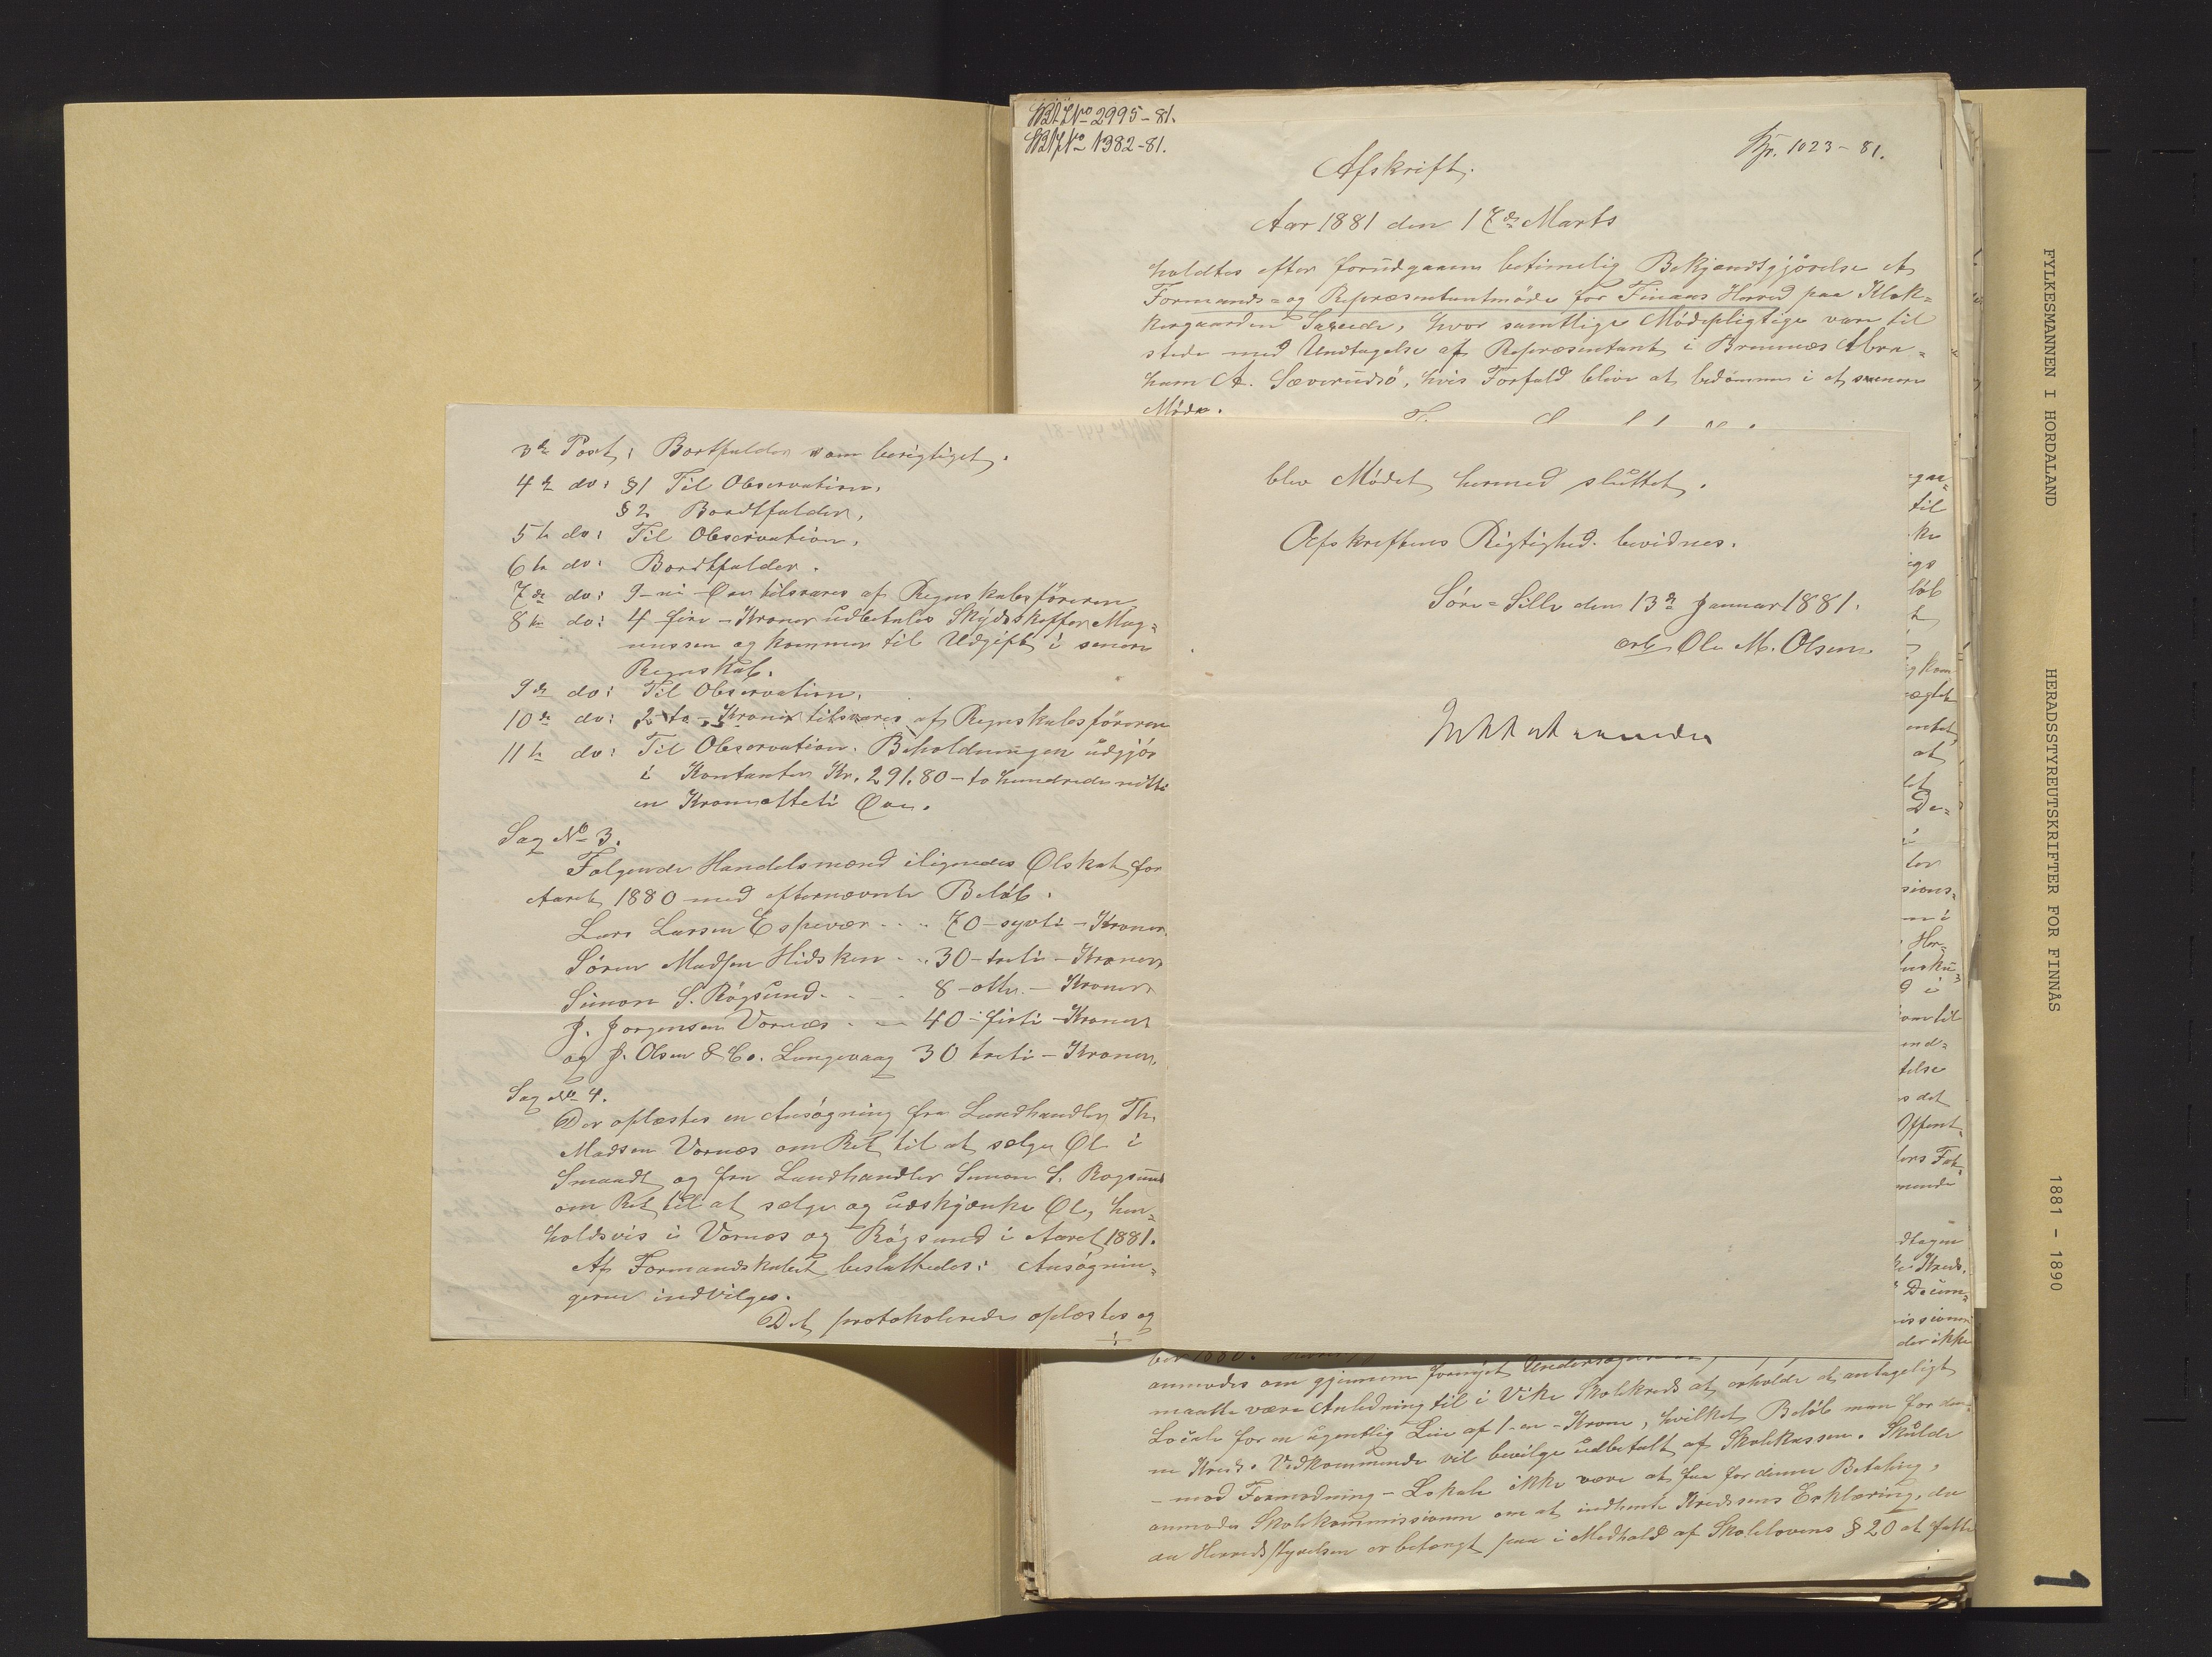 No 2995-81.
No 1382-81.
Kp. 1023-81.
Afskrift.
Aar 1881 den 17de Marts
holdtes efter forudgaaen betimelig Bekjendtgjörelse et
Formands- og Repræsentantmöde for Finaas Herred paa Klok-
kergaarden Sæeide, hvor samtlige Mödepligtige vare til
stede med Undtagelse af Repræsentant i Bremnæs Abra-
ham A. Sæverudsö, hvis Forfald bliver at bedömmes i et senere
Möde.
3de Post: Bortfalder som berigtiget.
4de do: §1 Til Observation.
§2 Bordtfalder.
5te do: Til Observation.
6te do: Bordtfalder.
7de do: 9-ni-Öre tilsvares af Regnskabsföreren
8de do: 4-fire-Kroner udbetales Skydsskaffer Mag-
nussen og kommer til Udgift i senere
Regnskab.
9de do: Til Observation.
10de do: 2-to-Kroner tilsvares af Regnskabsföreren
11te do: Til Observation. Beholdningen udgjör
i Kontanter Kr. 291.80-to hundrede nitti
en Kroner otteti Öre.
Sag No 3.
Fölgende Handelsmænd ilignedes Ölskat for
Aaret 1880 med efternævnte Belöb:
Lars Larsen Espevær - - - 70-sytti-Kroner
Sören Madsen Hidsken - - 30-treti-Kroner
Simon S. Rögsund - - - 8-otte-Kroner
J. Jorgensen Vornæs - - 40-firti-Kroner
og J. Olsen & Co. Langevaag 30 treti-Kroner.
Sag No 4.
Der oplæstes en Ansögning fra Landhandler Th.
Madsen Vornæs om Ret til at sælge Öl i
Smaadt og fra Landhandler Simon S. Rogsund
om Ret til at sælge og udskjænke Öl, hen-
holdsvis i Vornæs og Rögsund i Aaret 1881.
Af Formandskabet besluttedes: Ansögnin-
gerne indvilges.
Det protokolerede oplæstes og
blev Mödet hermed sluttet.
Afskriftens Rigtighed bevidnes.
Söre-Lille den 13de Januar 1881.
erb Ole M. Olsen
til
De-
tor
sions-
Her-
telse
det
Offent-
Kreds.
der ikke
ber 1880.
anmodes om gjennem fornyet
maatte være Anledning til i Vike Skolekreds at erholde et antageligt
Locale for en ugentlig Leie af 1-en-Krone, hvilket Belöb man for den-
ne Kreds Vedkommende vil bevilge udbetalt af Skolekassen. Skulde
- mod Formodning - Lokale ikke være at faa for denne Betaling,
anmodes Skolekommissionen om at indhente Kredsens Erklæring, da
Herredsstyrelsen er betænkt paa i Medhold af Skolelovens § 20 at fatte
FYLKESMANNEN I HORDALAND
HERADSSTYREUTSKRIFTER FOR FINNÅS
1881 - 1890
1